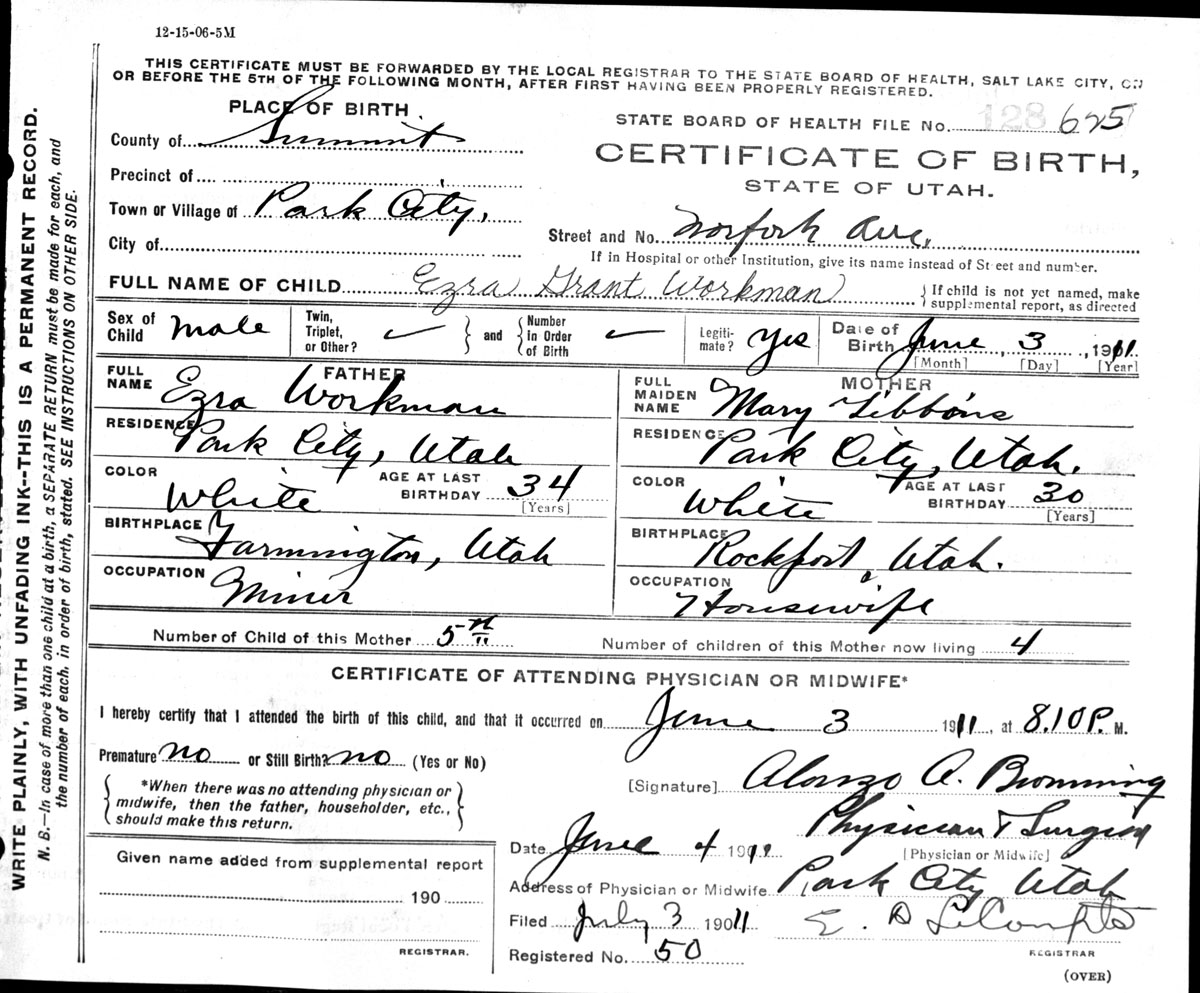 12-15-06-5M
THIS CERTIFICATE MUST BE FORWARDED BY THE LOCAL REGISTRAR TO THE STATE BOARD OF HEALTH, SALT LAKE CITY, ON
OR BEFORE THE 5TH OF THE FOLLOWING MONTH, AFTER FIRST HAVING BEEN PROPERLY REGISTERED.
PLACE OF BIRTH
County of Summit
Precinct of
Town or Village of Park City,
City of
STATE BOARD OF HEALTH FILE No. 128 625
CERTIFICATE OF BIRTH,
STATE OF UTAH.
Street and No. Norfork Ave,
If in Hospital or other Institution, give its name instead of Street and number.
FULL NAME OF CHILD Ezra Grant Workman
If child is not yet named, make
supplemental report, as directed
Sex of Child Male
Twin, Triplet, or Other? ✓ and Number in Order of Birth ✓
Legiti-mate? Yes
Date of Birth June, 3, 1911
[Month] [Day] [Year]
FATHER
FULL NAME Ezra Workman
RESIDENCE Park City, Utah
COLOR White AGE AT LAST BIRTHDAY 34
[Years]
BIRTHPLACE Farmington, Utah
OCCUPATION Miner
MOTHER
FULL MAIDEN NAME Mary Gibbons
RESIDENCE Park City, Utah.
COLOR White AGE AT LAST BIRTHDAY 30
[Years]
BIRTHPLACE Rockport, Utah.
OCCUPATION Housewife
Number of Child of this Mother 5th Number of children of this Mother now living 4
CERTIFICATE OF ATTENDING PHYSICIAN OR MIDWIFE*
I hereby certify that I attended the birth of this child, and that it occurred on June 3 1911, at 8.10 P. M.
Premature no or Still Birth? no (Yes or No)
*When there was no attending physician or
midwife, then the father, householder, etc.,
should make this return.
[Signature] Alonzo A. Browning
Physician & Surgeon
[Physician or Midwife]
Date June 4 1911
Address of Physician or Midwife Park City Utah
Filed July 3 1911 E. D LeCompte
REGISTRAR
Registered No. 50
(OVER)
Given name added from supplemental report
190
REGISTRAR.
WRITE PLAINLY, WITH UNFADING INK--THIS IS A PERMANENT RECORD.
N. B.—In case of more than one child at a birth, a SEPARATE RETURN must be made for each, and
the number of each, in order of birth, stated. SEE INSTRUCTIONS ON OTHER SIDE.